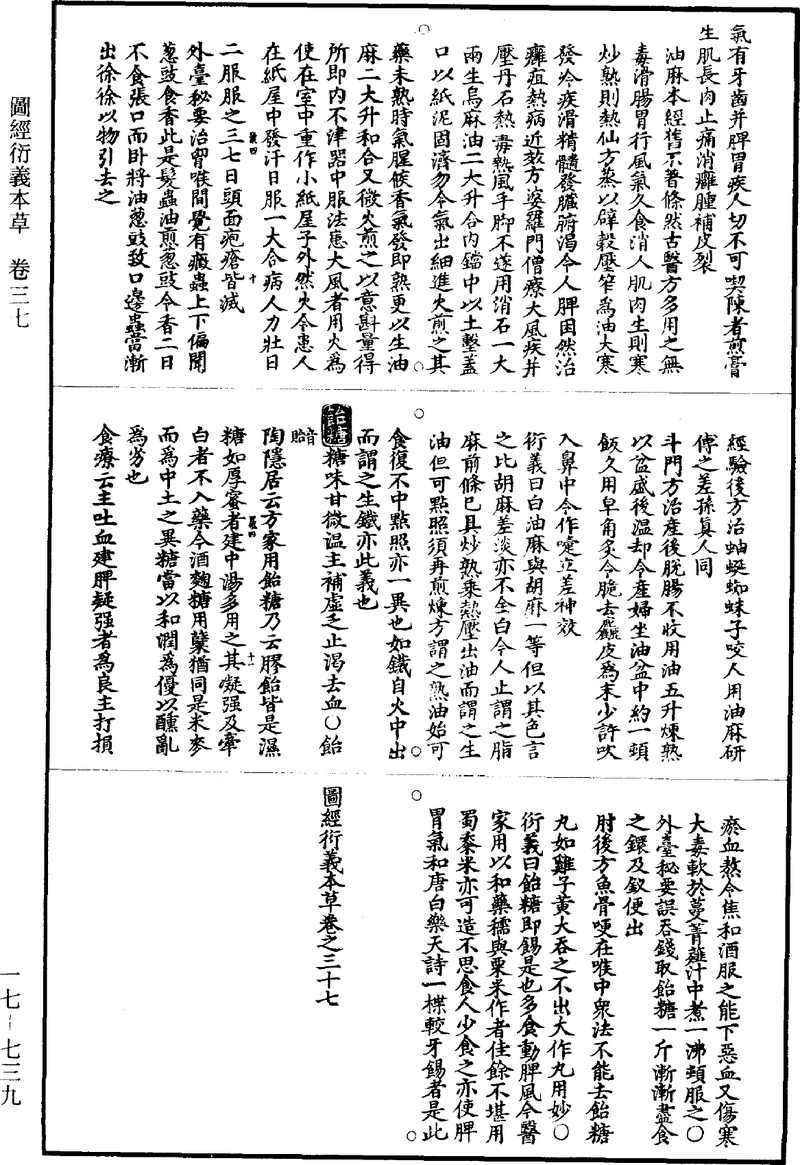 氣有牙齒并脾胃疾人切不可喫陳者煎膏
生肌長肉止痛消癰腫補皮裂
油麻本經舊不著條然古醫方多用之無
毒滑腸胃行風氣久食消人肌肉生則寒
炒熟則熱仙方蒸以辟穀壓笮為油大寒
發冷疾滑精髓發臟腑渴令人脾困然治
癰疽熱病近效方婆羅門僧療大風疾并
壓丹石熱毒熱風手脚不遂用消石一大
兩生烏麻油二大升合内鐺中以土墼蓋
口以紙泥固濟勿令氣出細進火煎之其
藥未熟時氣腥候香氣發即熟更以生油
麻二大升和合又微火煎之以意斟量得
所即内不津器中服法患大風者用火為
使在室中重作小紙屋子外然火令患人
在紙屋中發汗日服一大合病人力壯日
二服服之三七日頭面疱瘡皆滅
外臺秘要治胷喉間覺有癥蟲上下偏聞
葱豉食香此是髮蟲油煎葱豉令香二日
不食張口而卧將油葱豉致口邊蟲當漸
出徐徐以物引去之
經驗後方治蚰蜒蜘蛛子咬人用油麻研
傅之差孫真人同
斗門方治産後脱腸不收用油五升煉熟
以盆盛後温却令産婦坐油盆中約一頓
飯久用皁角炙令脆去麤皮為末少許吹
入鼻中令作嚏立差神效
衍義曰白油麻與胡麻一等但以其色言
之比胡麻差淡亦不全白今人止謂之脂
麻前條已具炒熟乗熱壓出油而謂之生
油但可點照須再煎煉方謂之熟油始可
食復不中點照亦一異也如鐵自火中出
而謂之生鐵亦此義也
飴糖味甘微温主補虛乏止渴去血○飴
音貽
陶隱居云方家用飴糖乃云膠飴皆是濕
糖如厚蜜者建中湯多用之其凝强及牽
白者不入藥今酒麴糖用糵猶同是米麥
而為中土之異糖當以和潤為優以醺亂
為劣也
食療云主吐血建脾凝强者為良主打損
瘀血熬令焦和酒服之能下惡血又傷寒
大毒軟於蔓菁薤汁中煮一沸頓服之○
外臺秘要誤吞錢取飴糖一斤漸漸盡食
之鐶及釵便出
肘後方魚骨哽在喉中衆法不能去飴糖
丸如雞子黄大吞之不出大作丸用妙○
衍義曰飴糖即餳是也多食動脾風今醫
家用以和藥糯與粟米作者佳餘不堪用
蜀黍米亦可造不思食人少食之亦使脾
胃氣和唐白樂天詩一楪較牙餳者是此
圖經衍義本草卷之三十七
圖經衍義本草　卷三七
一七－七三九